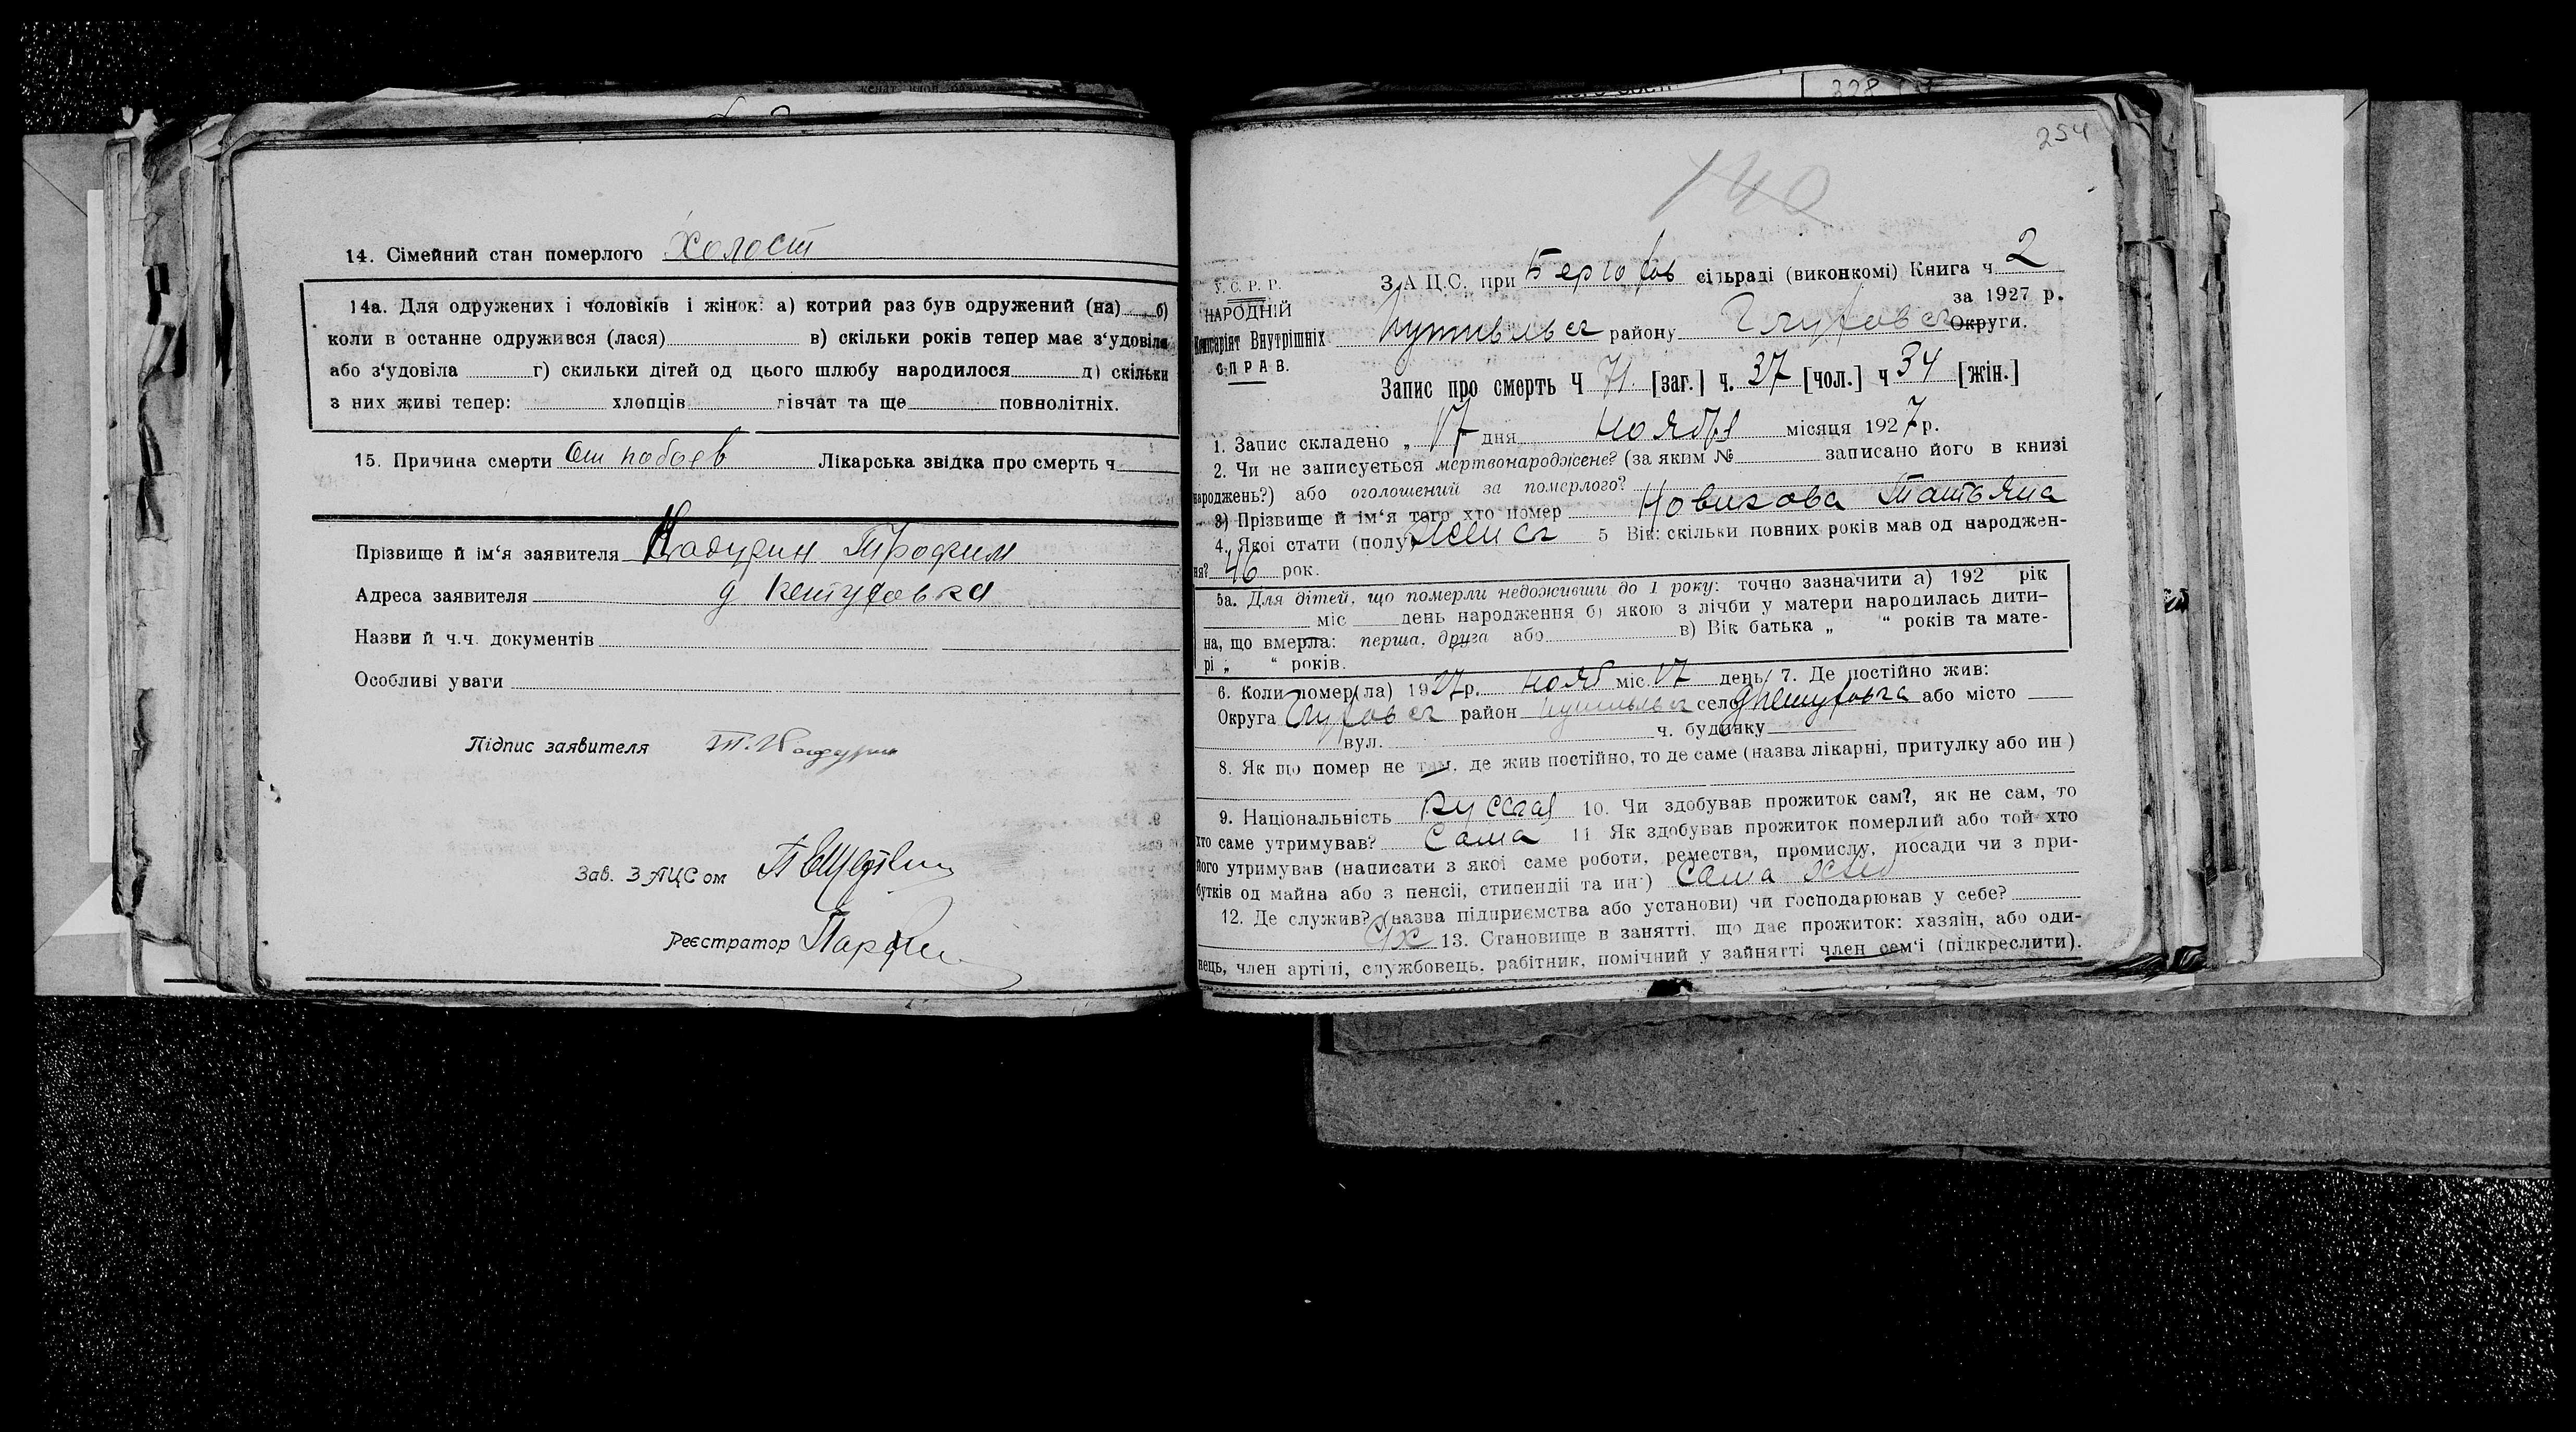 14. Сімейний стан померлого Холост
14а. Для одружених і чоловіків і жінок: а) котрий раз був одружений (на) б)
коли в останне одружився (лася) в) скільки років тепер має з‘удовіла
або з‘удовіла г) скильки дітей од цього шлюбу народилося д) скільки
з них живі тепер: хлопців дівчат та ще повнолітніх.
15. Причина смерти От побоев Лікарська звідка про смерть ч
Прізвище й ім‘я заявителя Кадурин Трофим
Адреса заявителя д
Назви й ч.ч. документів
Особливі уваги
Підпис заявителя Т. Кадурин
Зав. ЗАЦСом
Реєстратор
254
140
У.С.Р.Р.
НАРОДНІЙ
Комісаріят Внутрішніх
СПРАВ.
ЗАЦС. при сільраді (виконкомі) Книга ч 2
за 1927 р.
Путивльск району Глуховск Округи.
Запис про смерть Ч 71. [заг.] ч. 37 [чол.] ч 34 [жін.]
1. Запис складено „ 17 дня ноября місяця 1927 р.
2. Чи не записується мертвонароджене? (за яким № записано його в книзі
народжень?) або оголошений за померлого?
3) Прізвище й ім‘я того хто помер Новикова Татьяна
4. Якої стати (полу) женск 5 Вік: скільки повних років мав од народжен-
ня? 46 рок.
5а. Для дітей, що померли недоживши до 1 року: точно зазначити а) 192 рік
міс день народження б) якою з лічби у матери народилась дити-
на, що вмерла: перша, друга або в) Вік батька „ “ років та мате-
рі „ “ років.
6. Коли помер(ла) 1927р. нояб міс. 17 день 7. Де постійно жив:
Округа Глуховск район Путивльск село або місто
вул. ч. будинку
8. Як що помер не там, де жив постійно, то де саме (назва лікарні, притулку або ин )
9. Національність Русская 10. Чи здобував прожиток сам?, як не сам, то
хто саме утримував? Сама 11 Як здобував прожиток померлий або той хто
його утримував (написати з якої саме роботи, ремества, промислу, посади чи з при-
бутків од майна або з пенсії, стипендії та ин ) Сама
12. Де служив? (назва підприємства або установи) чи господарював у себе?
13. Становище в занятті, що дає прожиток: хазяін, або оди-
нець, член артілі, службовець, рабітник, помічний у зайнятті член сем‘і (підкреслити).